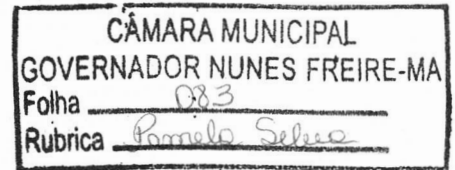 CÂMARA MUNICIPAL
GOVERNADOR NUNES FREIRE-MA
Folha 083
Rubrica Pamela Selva